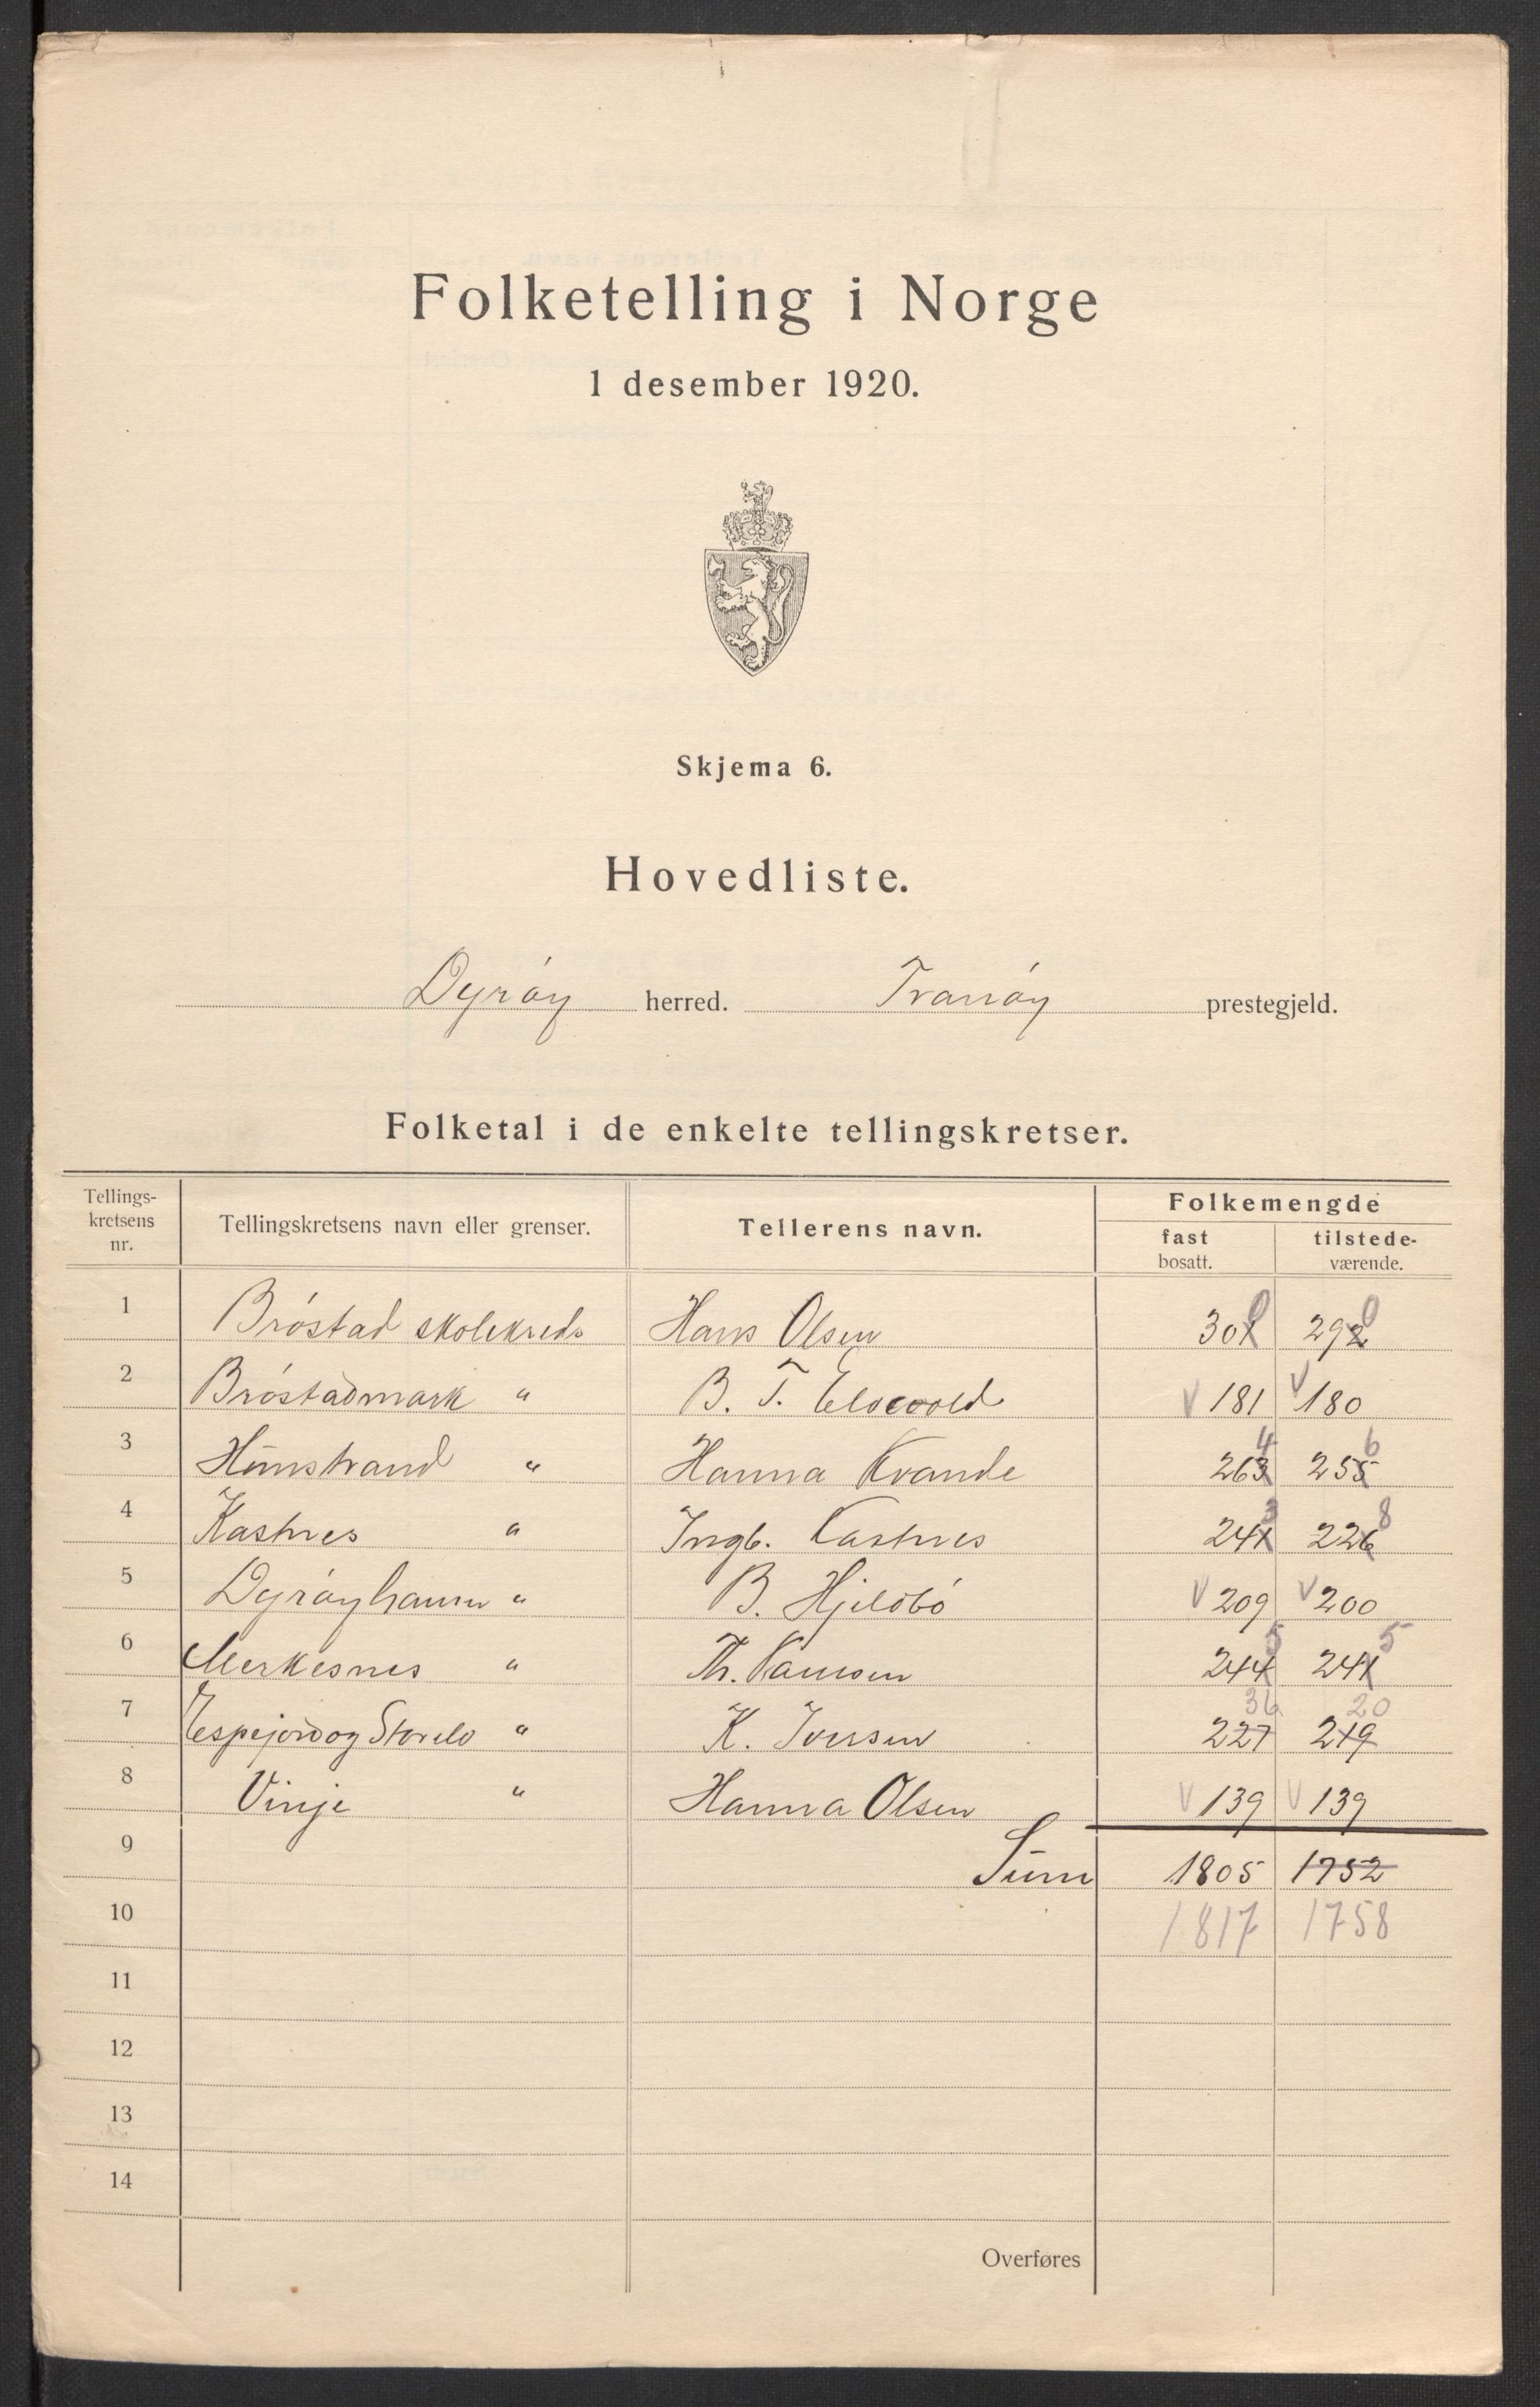 Folketelling i Norge
1 desember 1920.
Skjema 6.
Hovedliste.
Dyrøy herred. Tranøy prestegjeld.
Folketal i de enkelte tellingskretser.
Tellings-kretsens nr. Tellingskretsens navn eller grenser. Tellerens navn. Folkemengde
fast bosatt. tilstede-værende.
1 Brøstad skolekreds Hans Olsen 301 0 292 0
2 Brøstadmark " B. T. V 181 V 180
3 " Hanna Kvande 263 4 255 6
4 Kastnes " Ingb. Kastnes 241 3 226 8
5 Dyrøyhamn " B. V 209 V 200
6 " Th. 244 5 241 5
7 Espejord og " K. Iversen 227 36 219 20
8 Vinje " Hanna Olsen V 139 V 139
9 Sum 1805 1752
10 1817 1758
11
12
13
14
Overføres